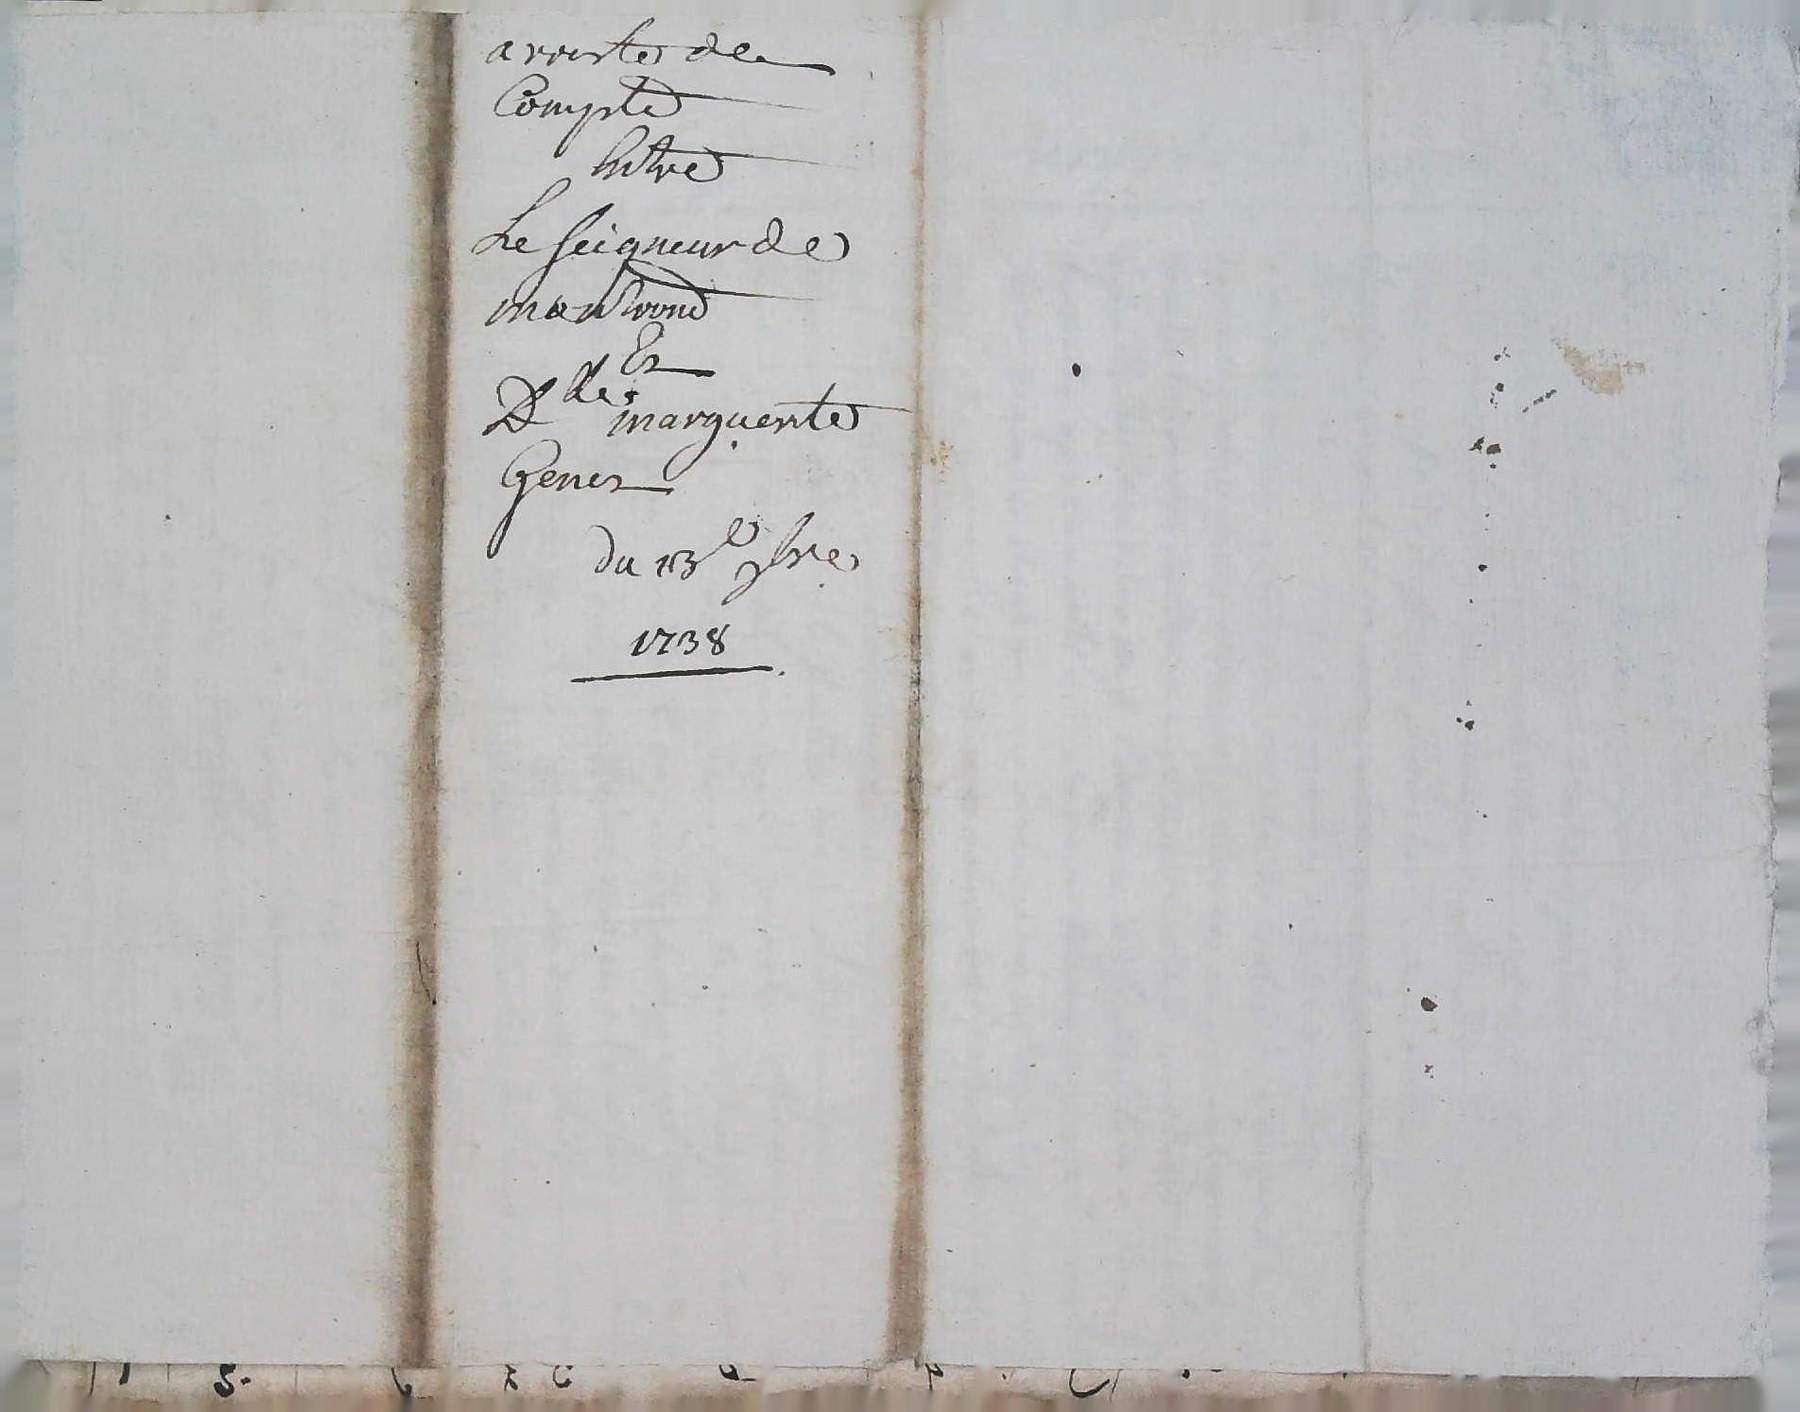 arreste de
Compte
Entre
Le seigneur de
Et
Dlle marguerite
Genes
du 13e 9bre
1738